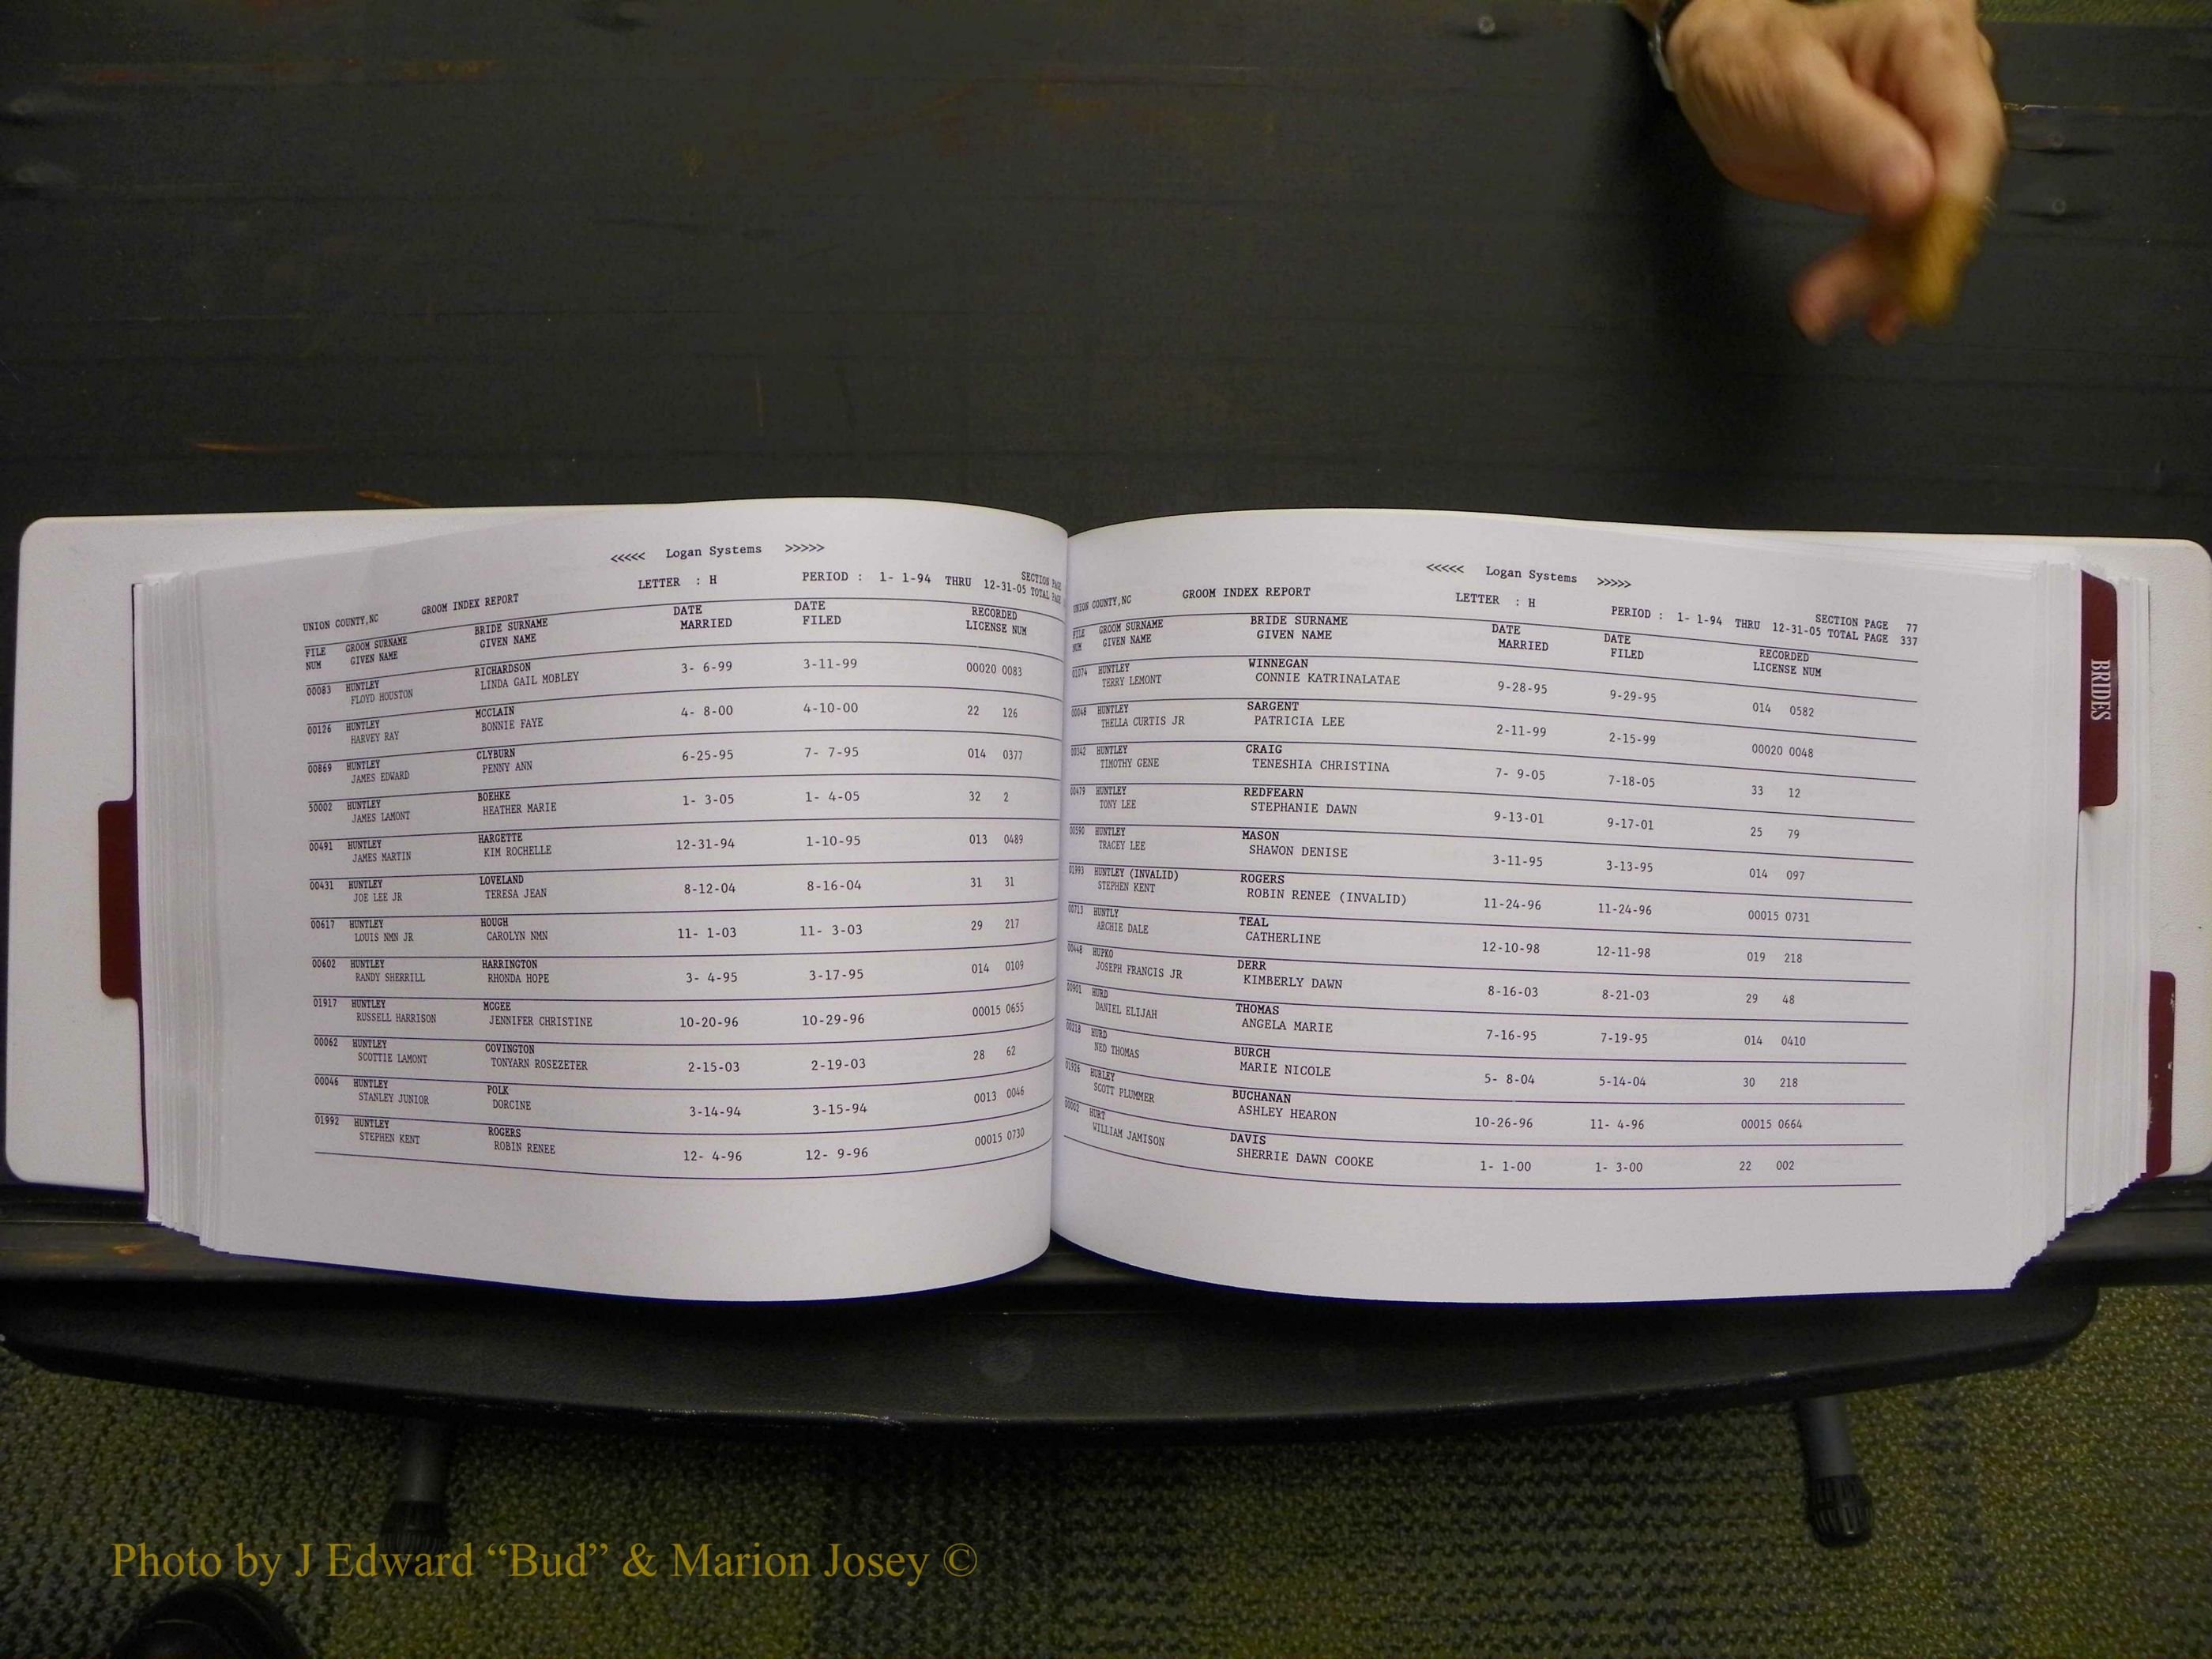 <<<<< Logan Systems >>>>>
LETTER : H PERIOD : 1- 1-94 THRU 12-31-05 SECTION PAGE
UNION COUNTY,NC GROOM INDEX REPORT TOTAL PAGE
FILE GROOM SURNAME BRIDE SURNAME DATE DATE RECORDED
NUM GIVEN NAME GIVEN NAME MARRIED FILED LICENSE NUM
00083 HUNTLEY RICHARDSON 3- 6-99 3-11-99 00020 0083
FLOYD HOUSTON LINDA GAIL MOBLEY
00126 HUNTLEY MCCLAIN 4- 8-00 4-10-00 22 126
HARVEY RAY BONNIE FAYE
00869 HUNTLEY CLYBURN 6-25-95 7- 7-95 014 0377
JAMES EDWARD PENNY ANN
50002 HUNTLEY BOEHKE 1- 3-05 1- 4-05 32 2
JAMES LAMONT HEATHER MARIE
00491 HUNTLEY HARGETTE 12-31-94 1-10-95 013 0489
JAMES MARTIN KIM ROCHELLE
00431 HUNTLEY LOVELAND 8-12-04 8-16-04 31 31
JOE LEE JR TERESA JEAN
00617 HUNTLEY HOUGH 11- 1-03 11- 3-03 29 217
LOUIS NMN JR CAROLYN NMN
00602 HUNTLEY HARRINGTON 3- 4-95 3-17-95 014 0109
RANDY SHERRILL RHONDA HOPE
01917 HUNTLEY MCGEE 10-20-96 10-29-96 00015 0655
RUSSELL HARRISON JENNIFER CHRISTINE
00062 HUNTLEY COVINGTON 2-15-03 2-19-03 28 62
SCOTTIE LAMONT TONYARN ROSEZETER
00046 HUNTLEY POLK 3-14-94 3-15-94 0013 0046
STANLEY JUNIOR DORCINE
01992 HUNTLEY ROGERS 12- 4-96 12- 9-96 00015 0730
STEPHEN KENT ROBIN RENEE
<<<<< Logan Systems >>>>>
LETTER : H PERIOD : 1- 1-94 THRU 12-31-05 SECTION PAGE 77
UNION COUNTY,NC GROOM INDEX REPORT TOTAL PAGE 337
FILE GROOM SURNAME BRIDE SURNAME DATE DATE RECORDED
NUM GIVEN NAME GIVEN NAME MARRIED FILED LICENSE NUM
01074 HUNTLEY WINNEGAN 9-28-95 9-29-95 014 0582
TERRY LEMONT CONNIE KATRINALATAE
00048 HUNTLEY SARGENT 2-11-99 2-15-99 00020 0048
THELLA CURTIS JR PATRICIA LEE
00342 HUNTLEY CRAIG 7- 9-05 7-18-05 33 12
TIMOTHY GENE TENESHIA CHRISTINA
00479 HUNTLEY REDFEARN 9-13-01 9-17-01 25 79
TONY LEE STEPHANIE DAWN
00590 HUNTLEY MASON 3-11-95 3-13-95 014 097
TRACEY LEE SHAWON DENISE
01993 HUNTLEY (INVALID) ROGERS 11-24-96 11-24-96 00015 0731
STEPHEN KENT ROBIN RENEE (INVALID)
00713 HUNTLY TEAL 12-10-98 12-11-98 019 218
ARCHIE DALE CATHERLINE
00448 HUPKO DERR 8-16-03 8-21-03 29 48
JOSEPH FRANCIS JR KIMBERLY DAWN
00901 HURD THOMAS 7-16-95 7-19-95 014 0410
DANIEL ELIJAH ANGELA MARIE
00218 HURD BURCH 5- 8-04 5-14-04 30 218
NED THOMAS MARIE NICOLE
01926 HURLEY BUCHANAN 10-26-96 11- 4-96 00015 0664
SCOTT PLUMMER ASHLEY HEARON
00002 HURT DAVIS 1- 1-00 1- 3-00 22 002
WILLIAM JAMISON SHERRIE DAWN COOKE
BRIDES
Photo by J Edward “Bud” & Marion Josey ©